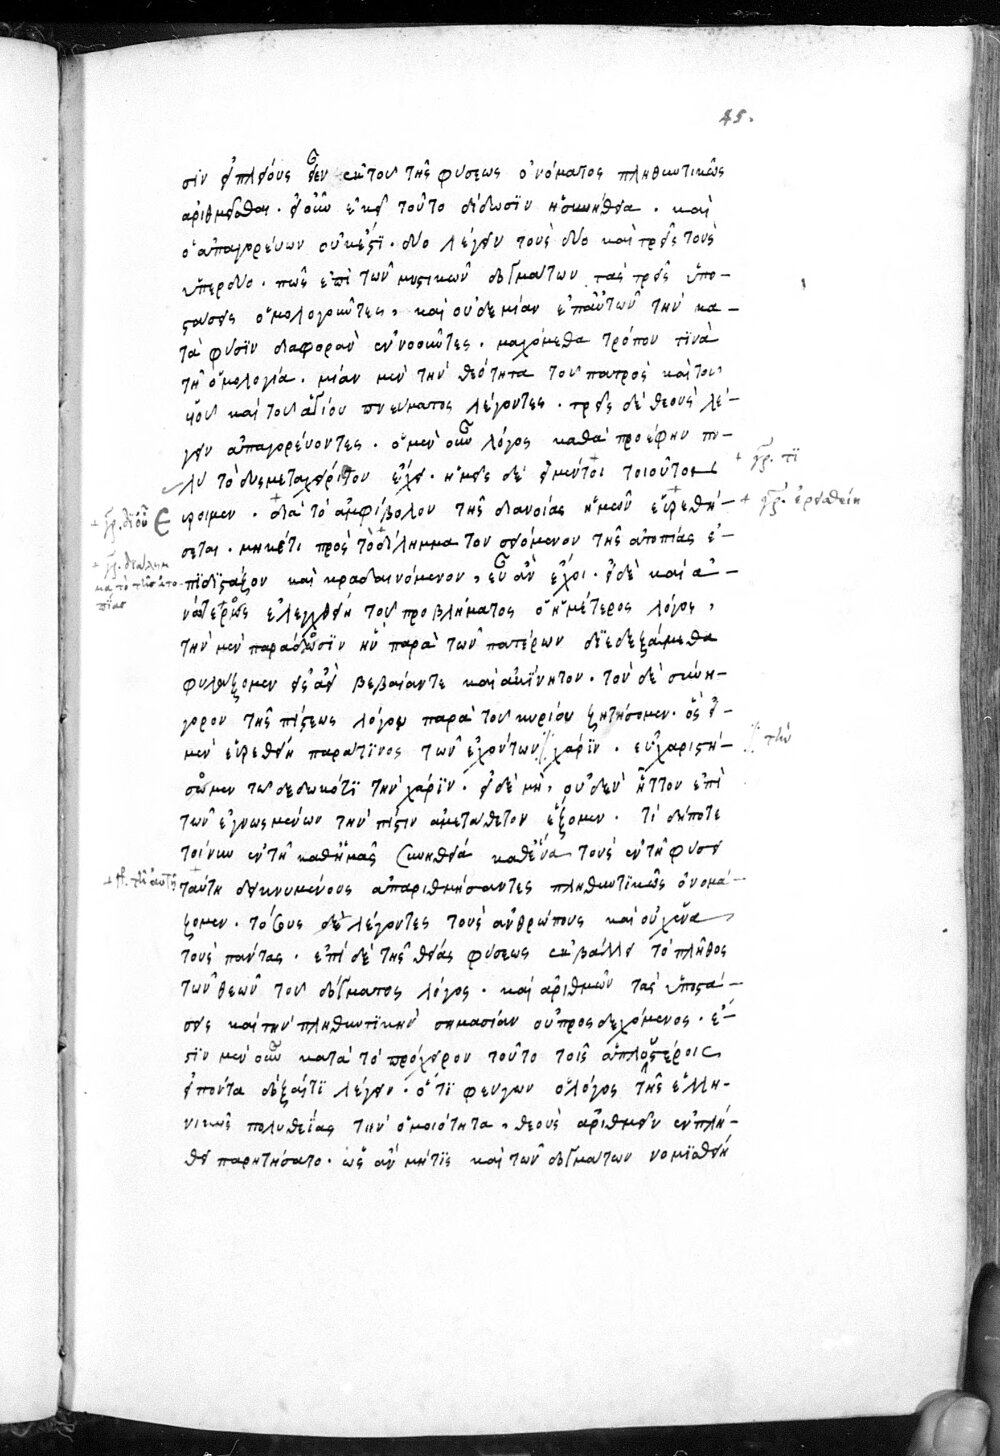 45.
σὶν εἰ πλείους εἶεν ἐκ τοῦ τῆς φύσεως ὀνόματος πληθυντικῶς
ἀριθμεῖσθαι. εἰ οὖν ἐκεῖ τοῦτο δίδωσιν ἡ συνήθεια. καὶ
ὁ ἀπαγορεύων οὐκ ἔστι. δύο λέγειν τοὺς δύο καὶ τρεῖς τοὺς
ὑπὲρ δύο. πῶς ἐπὶ τῶν μυστικῶν δογμάτων τὰς τρεῖς ὑπο-
στάσεις ὁμολογοῦντες, καὶ οὐδεμίαν ἐπ' αὐτῶν τὴν κα-
τὰ φύσιν διαφορὰν ἐννοοῦντες. μαχόμεθα τρόπον τινὰ
τῇ ὁμολογίᾳ. μίαν μὲν τὴν θεότητα τοῦ πατρὸς καὶ τοῦ
υἱοῦ καὶ τοῦ ἁγίου πνεύματος λέγοντες. τρεῖς δὲ θεοὺς λέ-
γειν ἀπαγορεύοντες. ὁ μὲν οὖν λόγος καθὰ προέφην πο-
λὺ τὸ δυσμεταχείριστον ἔχει. ἡμεῖς δὲ εἰ μέν τοι τοιοῦτον
εὕροιμεν. διὰ τὸ ἀμφίβολον τῆς διανοίας ἡμῶν εὑρεθή-
σεται. μηκέτι πρὸς τὸ δίλημμα τοῦ σειόμενον τῆς ἀτοπίας ἐ-
πιδιστάζον καὶ κραδαινόμενον, εὖ ἂν ἔχοι. εἰ δὲ καὶ ἀ-
νώτερος ἐλεγχθείη τοῦ προβλήματος ὁ ἡμέτερος λόγος,
τὴν μὲν παράδοσιν ἣν παρὰ τῶν πατέρων διεδεξάμεθα
φυλάξομεν εἰς ἀεὶ βεβαίαν τε καὶ ἀκίνητον. τὸν δὲ συνή-
γορον τῆς πίστεως λόγον παρὰ τοῦ κυρίου ζητήσομεν. ὃς εἰ
μὲν εὑρεθείη παρά τινος τῶν ἐχόντων // χάριν. εὐχαριστή-
σωμεν τῷ δεδωκότι τὴν χάριν. εἰ δὲ μὴ, οὐδὲν ἧττον ἐπὶ
τῶν ἐγνωσμένων τὴν πίστιν ἀμετάθετον ἕξομεν. τί δήποτε
τοίνυν ἐν τῇ καθ' ἡμᾶς συνηθείᾳ καθ' ἕνα τοὺς ἐν τῇ φύσει
ταύτῃ δεικνυμένους ἀπαριθμήσαντες πληθυντικῶς ὀνομά-
ζομεν. τόσους δὲ λέγοντες τοὺς ἀνθρώπους καὶ οὐχ ἕνα
τοὺς πάντας. ἐπὶ δὲ τῆς θείας φύσεως ἐκβάλλει τὸ πλῆθος
τῶν θεῶν τοῦ δόγματος λόγος. καὶ ἀριθμῶν τὰς ὑποστά-
σεις καὶ τὴν πληθυντικὴν σημασίαν οὐ προσδεχόμενος. ἔ-
στιν μὲν οὖν κατὰ τὸ πρόχειρον τοῦτο τοῖς ἁπλουστέροις
εἰπόντα δόξαι τι λέγειν. ὅτι φεύγων ὁ λόγος τῆς ἑλλη-
νικῆς πολυθεΐας τὴν ὁμοιότητα, θεοὺς ἀριθμεῖν ἐν πλή-
θει παρῃτήσατο. ὡς ἂν μή τις καὶ τῶν δογμάτων νομισθείη
+ γρ. τι
+ γρ. ἐρεθείη
+ γρ. διὸ
+ γρ. δίλημμα τὸ τῆς ἀτοπίας
// τὴν
+ γρ. τῇ αὐτῇ